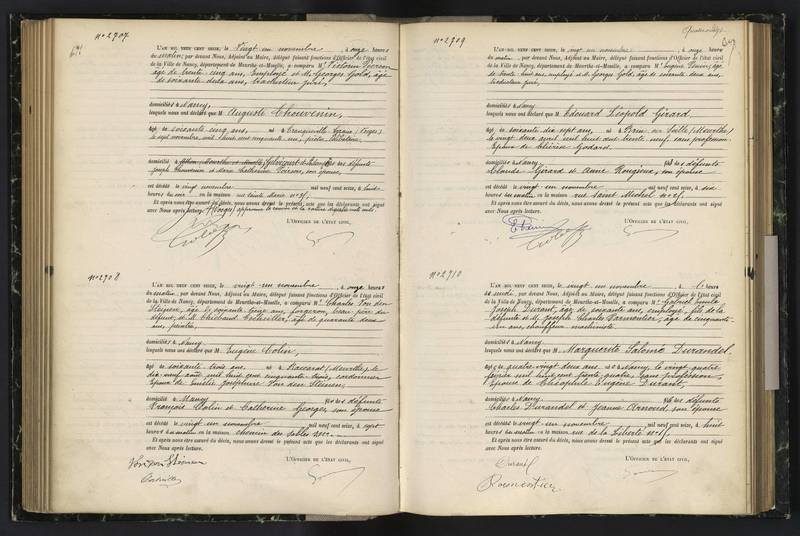 n° 2707
L'AN MIL NEUF CENT SEIZE, le vingt un novembre, à onze heures
du matin, par devant Nous, Adjoint au Maire, délégué faisant fonctions d'Officier de l'état civil
de la Ville de Nancy, département de Meurthe-et-Moselle, a comparu M. Victorin Poirson
âgé de trente cinq ans, employé et M. Georges Gold, âgé
de soixante deux ans, traducteur juré,
domiciliés à Nancy,
lesquels nous ont déclaré que M. Auguste Chouvenin,
âgé de soixante cinq ans, né à (Vosges)
le sept novembre mil huit cent cinquante un, célibataire,
domicilié à fils des défunts
Joseph Chouvenin et Marie Catherine Poirson, son épouse,
est décédé le vingt novembre mil neuf cent seize, à huit
heures du soir en la maison
Et après nous être assuré du décès, nous avons dressé le présent acte que les déclarants ont signé
avec Nous après lecture.
L'OFFICIER DE L'ÉTAT CIVIL,
n° 2708
L'AN MIL NEUF CENT SEIZE, le vingt un novembre, à onze heures
du matin, par devant Nous, Adjoint au Maire, délégué faisant fonctions d'Officier de l'état civil
de la Ville de Nancy, département de Meurthe-et-Moselle, a comparu M. Charles Von den
Steinen, âgé de soixante treize ans, forgeron, beau-père du
défunt, et M. âgé de quarante deux
ans, peintre,
domiciliés à Nancy
lesquels nous ont déclaré que M. Eugène Colin,
âgé de soixante trois ans, né à Baccarat (Meurthe), le
dix neuf août mil huit cent cinquante trois, cordonnier
Epoux de Emélie Joséphine Von den Steinen,
domicilié à Nancy fils des défunts
François Colin et Catherine Georges, son épouse
est décédé le vingt un novembre mil neuf cent seize, à sept
heures du matin en la maison chemin des sables
Et après nous être assuré du décès, nous avons dressé le présent acte que les déclarants ont signé
avec Nous après lecture.
L'OFFICIER DE L'ÉTAT CIVIL,
n° 2709
L'AN MIL NEUF CENT SEIZE, le vingt un novembre, à onze heures
du matin, par devant Nous, Adjoint au Maire, délégué faisant fonctions d'Officier de l'état civil
de la Ville de Nancy, département de Meurthe-et-Moselle, a comparu M. Eugène âgé
de trente huit ans, employé et M. Georges Gold, âgé de soixante deux ans,
traducteur juré,
domiciliés à Nancy
lesquels nous ont déclaré que M. Edouard Léopold Girard
âgé de soixante dix sept ans, né à (Meurthe)
le vingt deux avril mil huit cent trente neuf, sans profession
Epoux de Godard
domicilié à Nancy fils des défunts
Claude Girard et Anne Rougieux, son épouse
est décédé le vingt un novembre mil neuf cent seize, à six
heures du matin en la maison rue Saint Michel
Et après nous être assuré du décès, nous avons dressé le présent acte que les déclarants ont signé
avec Nous après lecture.
L'OFFICIER DE L'ÉTAT CIVIL,
n° 2710
L'AN MIL NEUF CENT SEIZE, le vingt un novembre, à heures
par devant Nous, Adjoint au Maire, délégué faisant fonctions d'Officier de l'état civil
de la Ville de Nancy, département de Meurthe-et-Moselle, a comparu M. Gabriel Emile
Joseph Durant, âgé de soixante ans, employé, fils de la
défunte et M. Joseph Charles Parmentier, âgé de cinquante
un ans, chauffeur machiniste
domiciliés à Nancy
lesquels nous ont déclaré que M. Marguerite Salomé Durandel,
âgé de quatre vingt deux ans, né à Nancy, le vingt quatre
février mil huit cent trente quatre, sans profession
Epouse de Théophile Eugène Durant,
domicilié à Nancy fils des défunts
Charles Durandel et Jeanne Arnould, son épouse
est décédé le vingt un novembre mil neuf cent seize, à huit
heures du matin en la maison rue de la Liberté
Et après nous être assuré du décès, nous avons dressé le présent acte que les déclarants ont signé
avec Nous après lecture.
L'OFFICIER DE L'ÉTAT CIVIL,
Durant
Parmentier